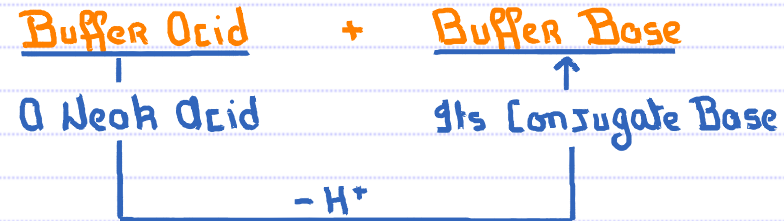 Buffer Acid + Buffer Base
A Weak Acid Its Conjugate Base
- H+